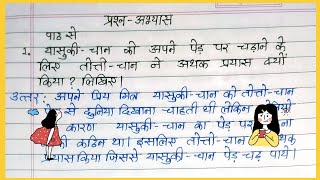 प्रश्न-अभ्यास
पाठ से
1. यासुकी-चान को अपने पेड़ पर चढ़ाने के
लिए तोत्तो-चान ने अथक प्रयास क्यों
किया? लिखिए।
उत्तर: अपने प्रिय मित्र यासुकी-चान को तोत्तो-चान
से दुनिया दिखाना चाहती थी लेकिन
कारण यासुकी-चान का पेड़ पर
कठिन था। इसलिए तोत्तो-चान
प्रयास किया जिससे यासुकी-चान पेड़ चढ़ पाये।